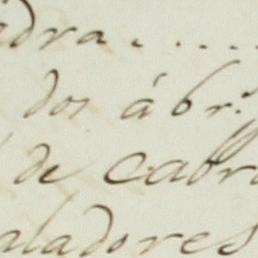 adra . . . . .
dos á br.
de cabr
aladores